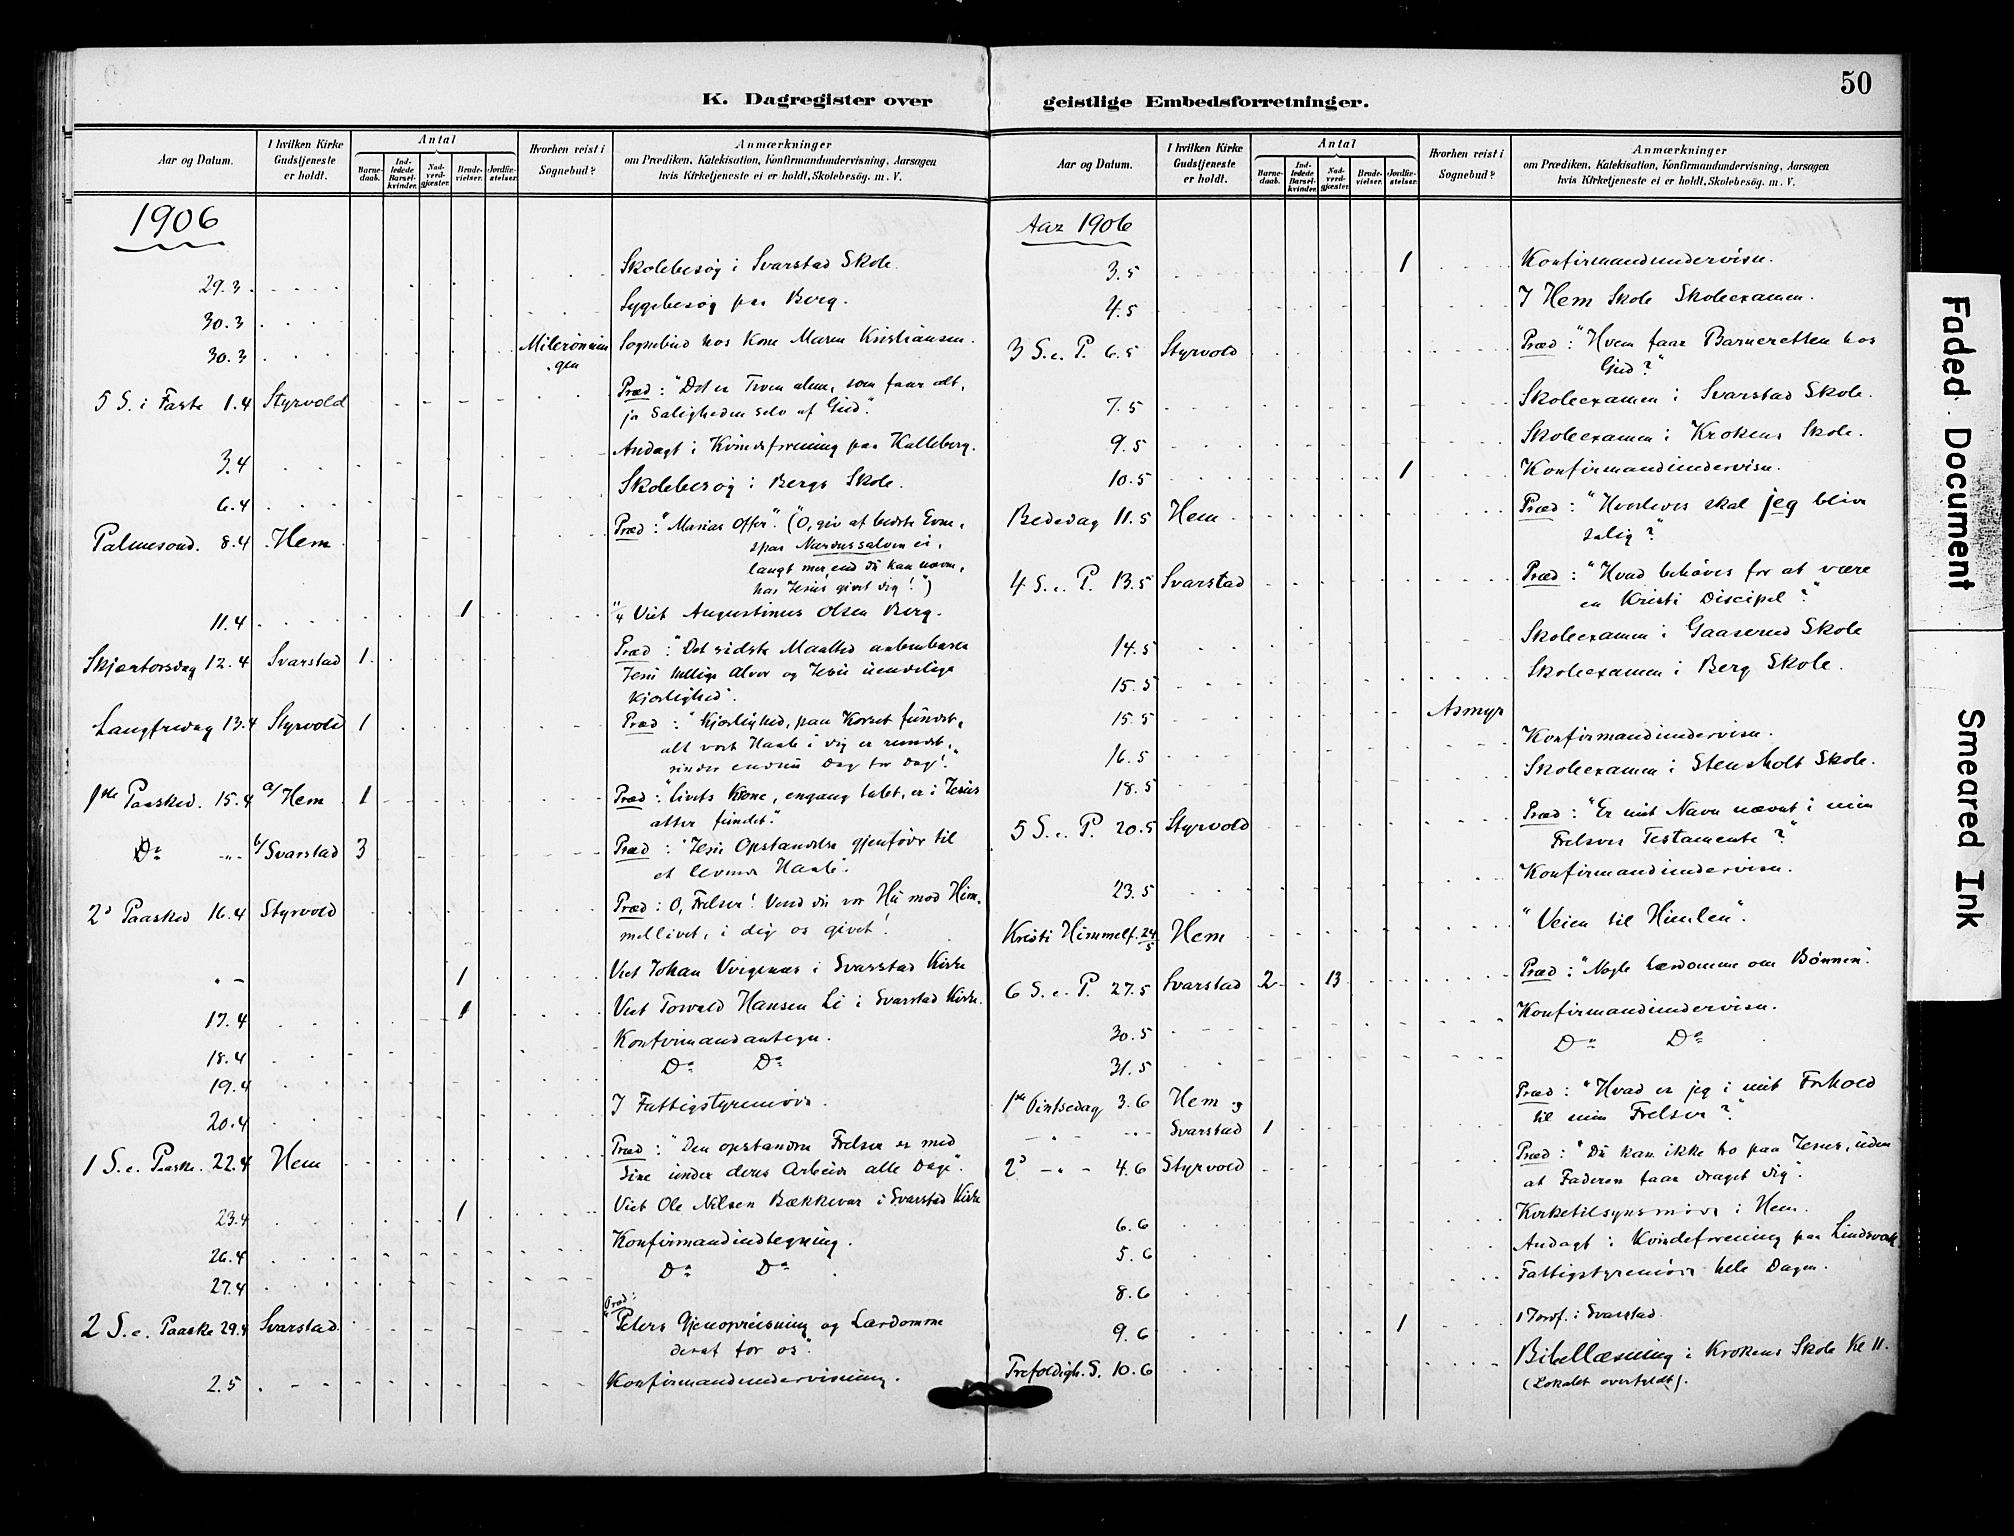 50
K. Dagregister over geistlige Embedsforretninger.
Aar og Datum.
I hvilken Kirke Gudstjeneste er holdt.
Antal
Barne-daab.
Ind-ledede Barsel-kvinder.
Nad-verd-gjæster.
Brude-vielser.
Jordfæ-stelser.
Hvorhen reist i Sognebud?
Anmærkninger
om Prædiken, Katekisation, Konfirmandundervisning, Aarsagen
hvis Kirketjeneste ei er holdt, Skolebesøg. m. V.
1906
29.3 Skolebesøg i Svarstad Skole
30.3 Sygebesøg paa Berg.
30.3 Sognebud hos Kone Maren Kristiansen.
5 S. i Faste 1.4 Styrvold Præd: "Det er Troen alene, som faar alt,
ja Saligheden selv af Gud".
3.4 Andagt i Kvindeforening paa Kalleberg.
6.4 Skolebesøg i Bergs Skole.
Palmesond. 8.4 Hem Præd: "Marias Offer". (O, giv at bedste Evne,
spar Nardussalven ei,
langt mer end du kan nævne,
har Jesus givet dig!")
11.4 1 11/4 Viet Augustinus Olsen Berg.
Skjærtorsdag 12.4 Svarstad 1 Præd: "Det sidste Maaltid aabenbarer
Jesu hellige Alvor og Jesu uendelige
Kjærlighed".
Langfredag 13.4 Styrvold 1 Præd: "Kjærlighed, paa Korset fundet,
alt vort Haab i dig er rundet,
rinder endnu Dag for Dag!"
1ste Paasked. 15.4 a/ Hem 1 Præd: "Livets Krone, engang tabt, er i Jesus
atter fundet."
Do -"- b/ Svarstad 3 Præd: "Jesu Opstandelse gjenføder til
et levende Haab".
2d Paasked 16.4 Styrvold Præd: O, Frelser! Vend du vor Hu mod Him-
mellivet, i dig os givet!
" - 1 Viet Johan Virgenæs i Svarstad Kirke
17.4 1 Viet Torvald Hansen Li i Svarstad Kirke.
18.4 Konfirmandantegn.
19.4 Do Do
20.4 I Fattigstyremøde.
1 S. e. Paaske. 22.4 Hem Præd: "Den opstandne Frelser er med
sine under deres Arbeide alle Dage".
23.4 1 Viet Ole Nilsen Bækkevar i Svarstad Kirke
26.4 Konfirmandindtegning.
27.4 Do Do
2 S. e. Paaske 29.4 Svarstad Præd: "Peters Gjenopreisning og Lærdomme
deraf for os".
2.5 Konfirmandundervisning.
Aar og Datum.
I hvilken Kirke Gudstjeneste er holdt.
Antal
Barne-daab.
Ind-ledede Barsel-kvinder.
Nad-verd-gjæster.
Brude-vielser.
Jordfæ-stelser.
Hvorhen reist i Sognebud?
Anmærkninger
om Prædiken, Katekisation, Konfirmandundervisning, Aarsagen
hvis Kirketjeneste ei er holdt, Skolebesøg. m. V.
Aar 1906
3.5 1 Konfirmandundervisn.
4.5 I Hem Skole Skoleexamen.
3 S. e. P. 6.5 Styrvold Præd: "Hvem faar Barneretten hos
Gud?"
7.5 Skoleexamen i Svarstad Skole.
9.5 Skoleexamen i Krokens Skole.
10.5 1 Konfirmandundervisn.
Bededag 11.5 Hem Præd: "Hvorledes skal jeg blive
salig?"
4 S. e. P. 13.5 Svarstad Præd: "Hvad behøves for at være
en Kristi Discipel?"
14.5 Skoleexamen i Gaaserud Skole
15.5 Skoleexamen i Berg Skole.
15.5 Asmyr
16.5 Konfirmandundervisn.
18.5 Skoleexamen i Stensholt Skole.
5 S. e. P. 20.5 Styrvold Præd: "Er mit Navn nævnt i min
Frelsers Testamente?"
23.5 Konfirmandundervisn.
Kristi Himmelf. 24/5 Hem "Veien til Himlen".
6 S. e. P. 27.5 Svarstad 2 13 Præd: "Nogle Lærdomme om Bønnen".
30.5 Konfirmandundervisn.
31.5 Do Do
1ste Pintsedag 3.6 Hem og Præd: "Hvad er jeg i mit Forhold
til min Frelser?"
- " - Svarstad 1
2d - " - 4.6 Styrvold Præd: "Du kan ikke tro paa Jesus, uden
at Faderen faar draget dig".
6.6 Kirketilsynsmøde i Hem.
5.6 Andagt i Kvindeforening paa
8.6 Fattigstyremøde hele Dagen.
9.6 1 1 Jordf. i Svarstad.
Trefoldigh. S. 10.6 Bibellæsning i Krokens Skole Kl 11.
(Lokalet overfyldt).
Faded Document
Smeared Ink